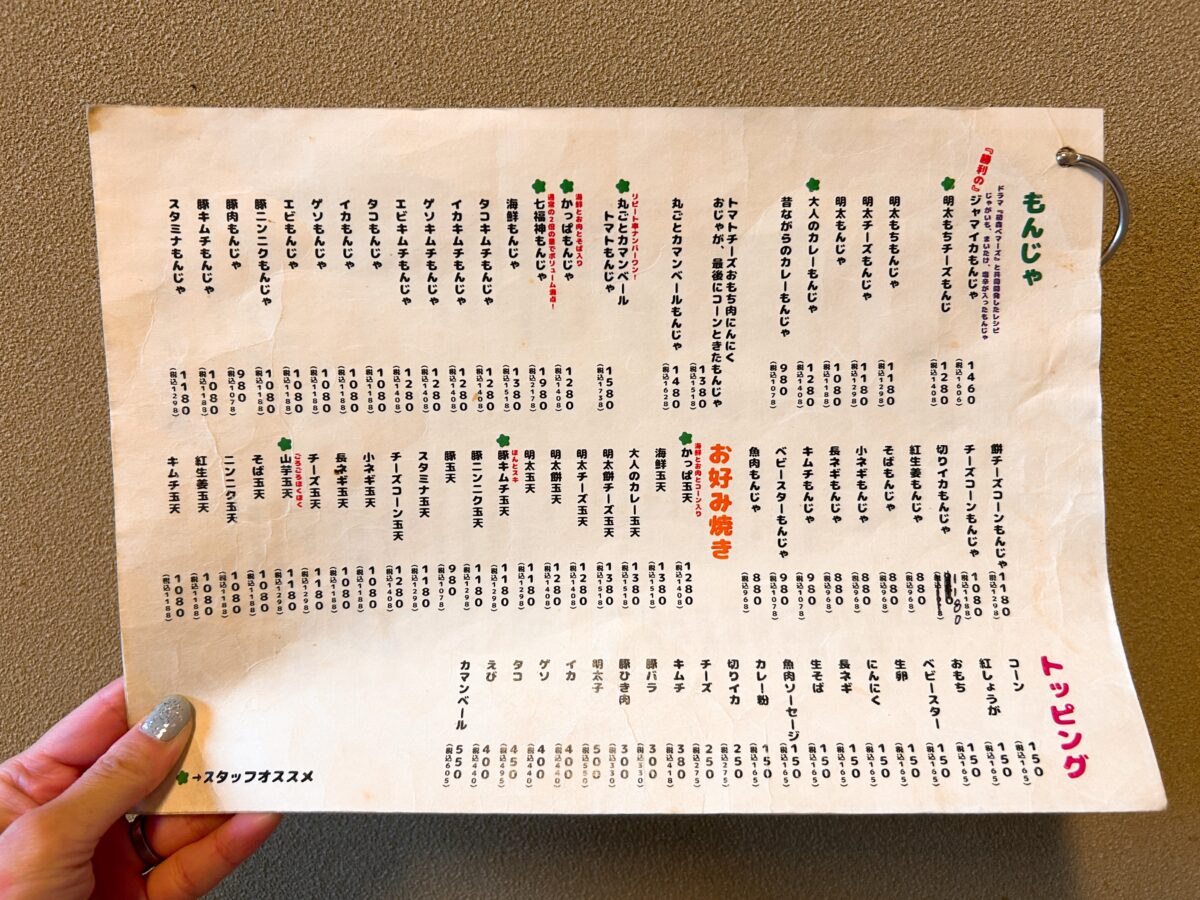 もんじゃ
ドラマ『初森ベマーズ』と共同開発したレシピ
じゃがいも、まいたけ、塩辛が入ったもんじゃ
『勝利の』ジャマイカもんじゃ 1460 (税込1606)
明太もちチーズもんじ 1280 (税込1408)
明太もちもんじゃ 1180 (税込1298)
明太チーズもんじゃ 1180 (税込1298)
明太もんじゃ 1080 (税込1188)
大人のカレーもんじゃ 1280 (税込1408)
昔ながらのカレーもんじゃ 980 (税込1078)
トマトチーズおもち肉にんにく
おじゃが、最後にコーンときたもんじゃ 1380 (税込1518)
丸ごとカマンベールもんじゃ 1480 (税込1628)
リピート率ナンバーワン!
丸ごとカマンベール
トマトもんじゃ 1580 (税込1738)
海鮮とお肉とそば入り
かっぱもんじゃ 1280 (税込1408)
通常の2倍の量でボリューム満点!
七福神もんじゃ 1980 (税込2178)
海鮮もんじゃ 1380 (税込1518)
タコキムチもんじゃ 1280 (税込1408)
イカキムチもんじゃ 1280 (税込1408)
ゲソキムチもんじゃ 1280 (税込1408)
エビキムチもんじゃ 1280 (税込1408)
タコもんじゃ 1080 (税込1188)
イカもんじゃ 1080 (税込1188)
ゲソもんじゃ 1080 (税込1188)
エビもんじゃ 1080 (税込1188)
豚ニンニクもんじゃ 1080 (税込1188)
豚肉もんじゃ 980 (税込1078)
豚キムチもんじゃ 1080 (税込1188)
スタミナもんじゃ 1180 (税込1298)
餅チーズコーンもんじゃ 1180 (税込1298)
チーズコーンもんじゃ 1080 (税込1188)
切りイカもんじゃ 1180
紅生姜もんじゃ 880 (税込968)
そばもんじゃ 880 (税込968)
小ネギもんじゃ 880 (税込968)
長ネギもんじゃ 880 (税込968)
キムチもんじゃ 980 (税込1078)
ベビースターもんじゃ 980 (税込1078)
魚肉もんじゃ 880 (税込968)
お好み焼き
海鮮とお肉とコーン入り
かっぱ玉天 1280 (税込1408)
海鮮玉天 1380 (税込1518)
大人のカレー玉天 1380 (税込1518)
明太餅チーズ玉天 1380 (税込1518)
明太チーズ玉天 1280 (税込1408)
明太餅玉天 1280 (税込1408)
明太玉天 1180 (税込1298)
ほんとスキ
豚キムチ玉天 1180 (税込1298)
豚ニンニク玉天 1180 (税込1298)
豚玉天 980 (税込1078)
スタミナ玉天 1180 (税込1298)
チーズコーン玉天 1280 (税込1408)
小ネギ玉天 1080 (税込1188)
長ネギ玉天 1080 (税込1188)
チーズ玉天 1180 (税込1298)
ごろごろほくほく
山芋玉天 1180 (税込1298)
そば玉天 1080 (税込1188)
ニンニク玉天 1080 (税込1188)
紅生姜玉天 1080 (税込1188)
キムチ玉天 1080 (税込1188)
トッピング
コーン 150 (税込165)
紅しょうが 150 (税込165)
おもち 150 (税込165)
ベビースター 150 (税込165)
生卵 150 (税込165)
にんにく 150 (税込165)
長ネギ 150 (税込165)
生そば 150 (税込165)
魚肉ソーセージ 150 (税込165)
カレー粉 150 (税込165)
切りイカ 250 (税込275)
チーズ 250 (税込275)
キムチ 380 (税込418)
豚バラ 300 (税込330)
豚ひき肉 300 (税込330)
明太子 500 (税込550)
イカ 400 (税込440)
ゲソ 400 (税込440)
タコ 450 (税込495)
えび 400 (税込440)
カマンベール 550 (税込605)
→スタッフオススメ